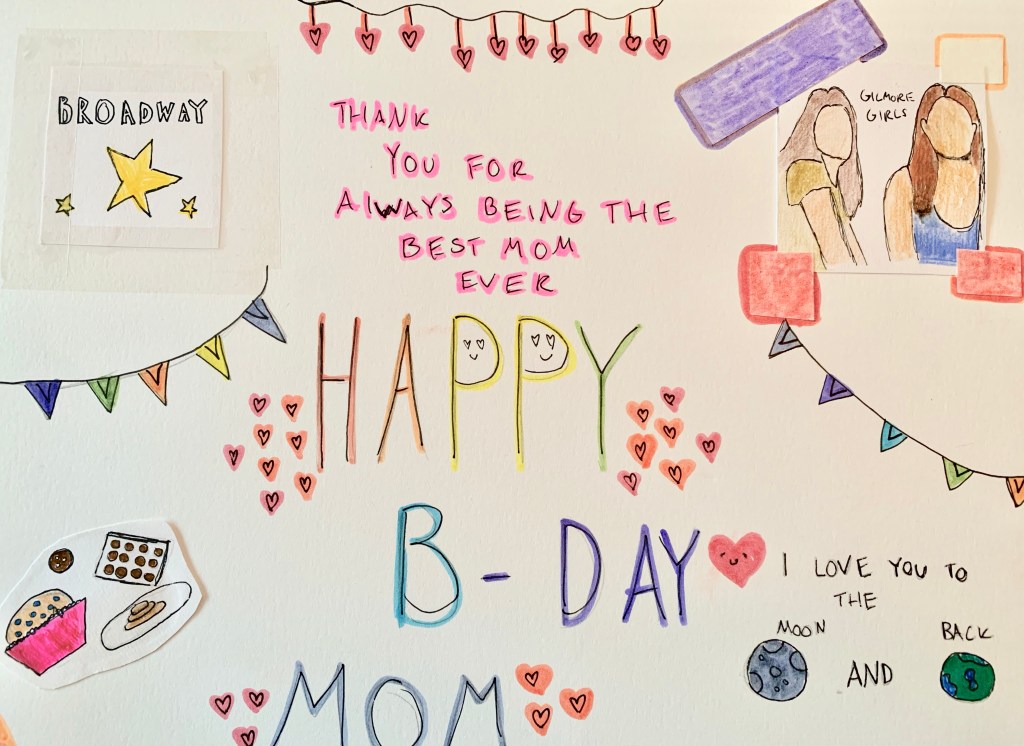 BROADWAY
THANK
YOU FOR
AlWAYS BEING THE
BEST MOM
EVER
GILMORE
GIRLS
HAPPY
B-DAY
MOM
I LOVE YOU TO
THE
MOON
AND
BACK